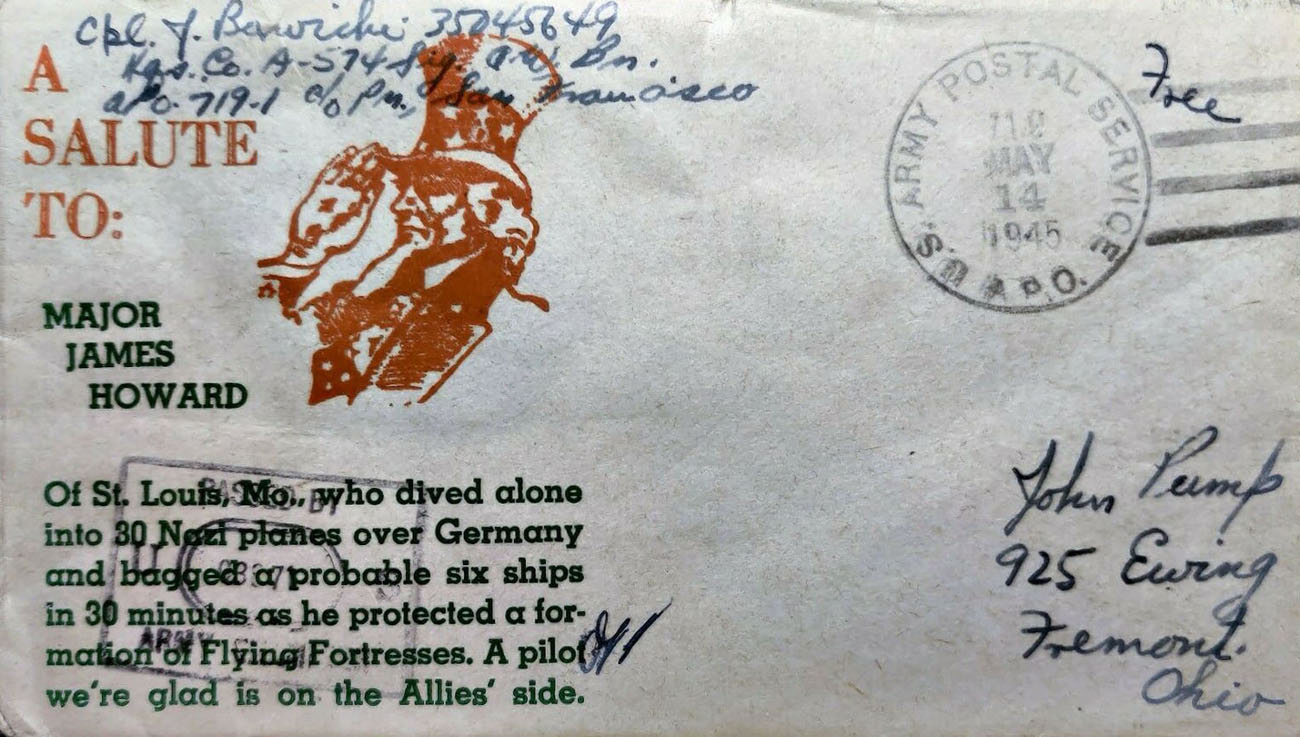 Cpl. J. Barwicki 35045649
Hqs. Co. A-574 Sig. A.W. Bn.
APO. 719-1 c/o Pm., San Francisco
Free
U.S. ARMY POSTAL SERVICE
A.P.O.
719
MAY
14
1945
A
SALUTE
TO:
MAJOR
JAMES
HOWARD
Of St. Louis, Mo., who dived alone
into 30 Nazi planes over Germany
and bagged a probable six ships
in 30 minutes as he protected a for-
mation of Flying Fortresses. A pilot
we're glad is on the Allies' side.
PASSED BY
ARMY
John Pump
925 Ewing
Fremont.
Ohio